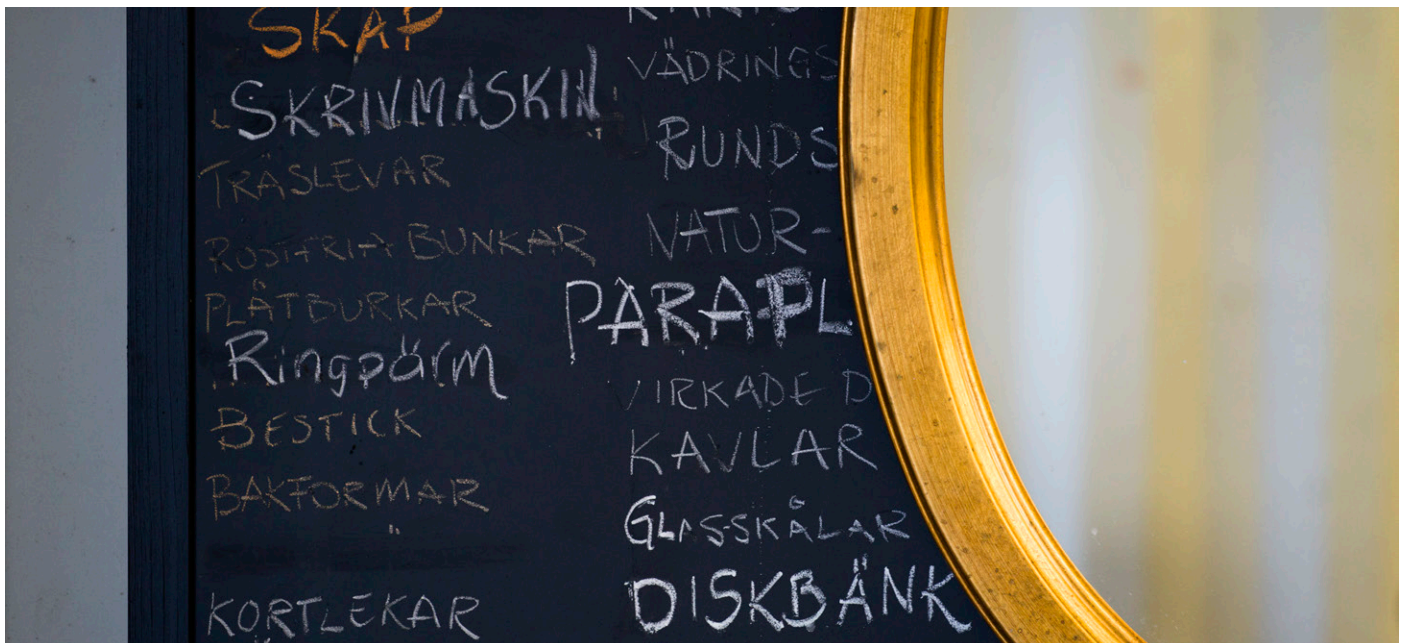 SKÅP
SKRIVMASKIN
TRÄSLEVAR
ROSTFRIA BUNKAR
PLÅTBURKAR
Ringpärm
BESTICK
BAKFORMAR
KORTLEKAR
VÄDRINGS
RUNDS
NATUR-
PARAPL
VIRKADE D
KAVLAR
GLASSKÅLAR
DISKBÄNK